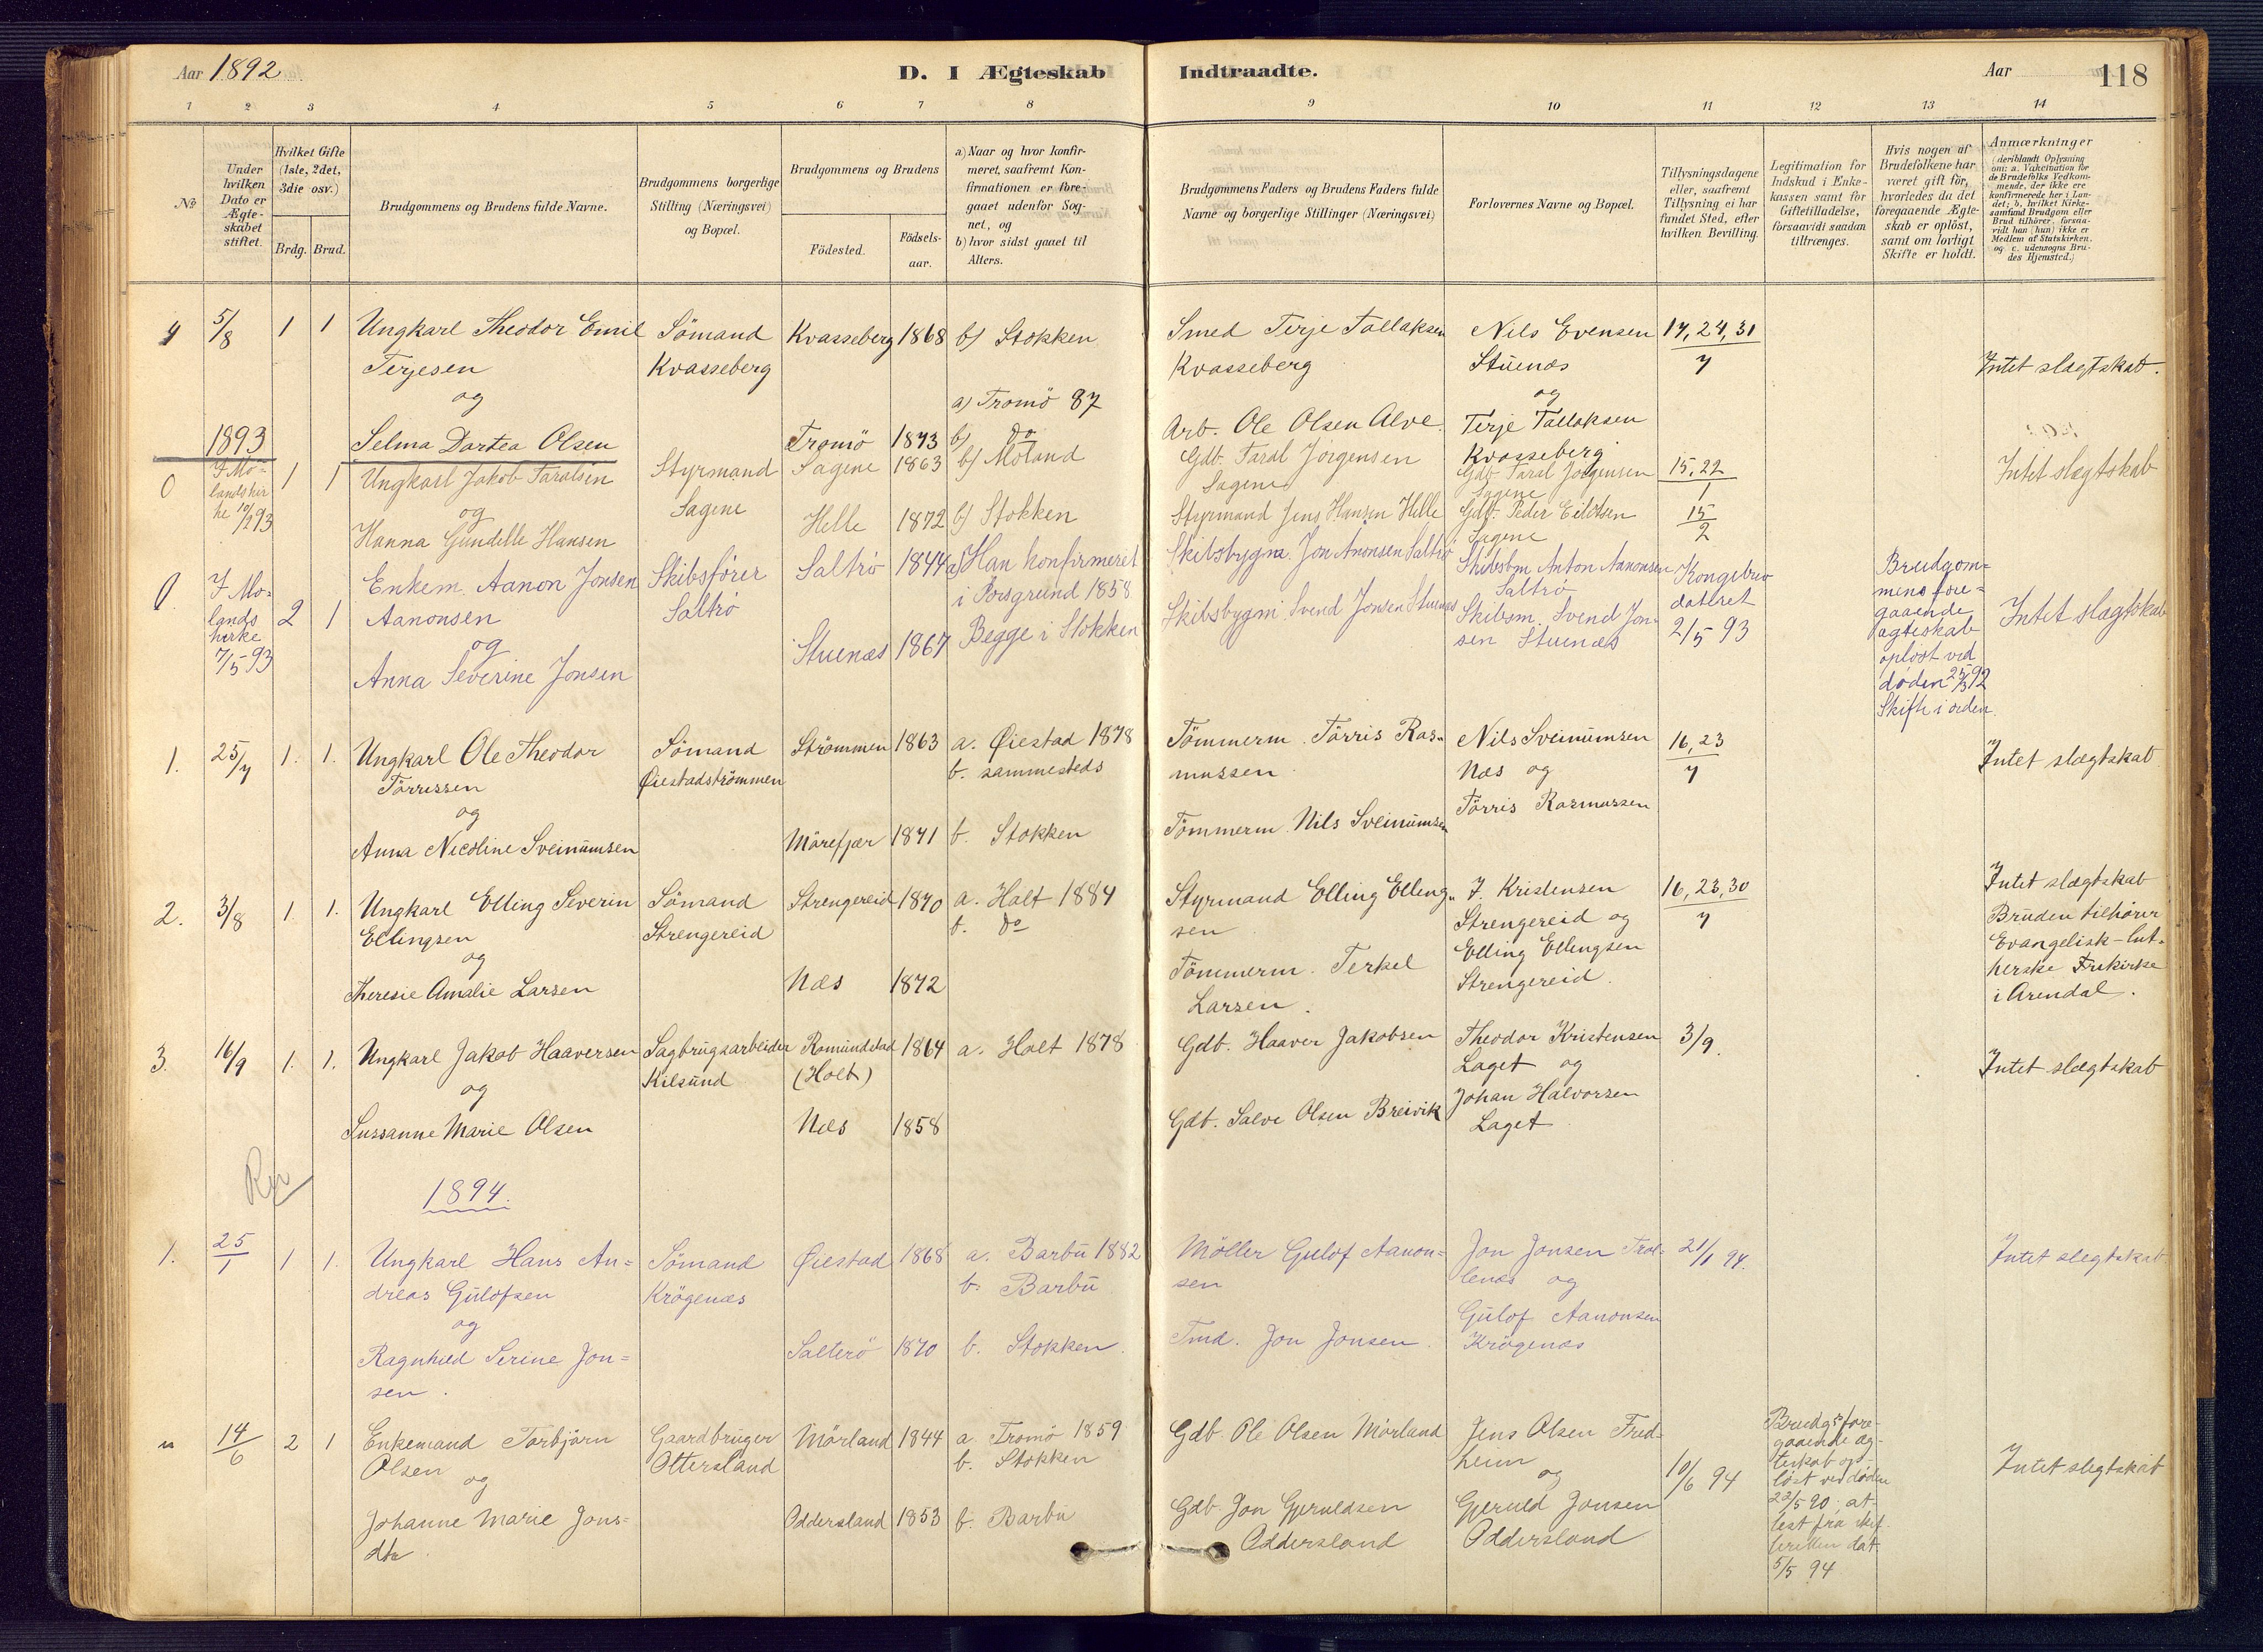 Aar 1892
D. I Ægteskab Indtraadte.
Aar
118
1 2 3 4 5 6 7 8 9 10 11 12 13 14
№
Under hvilken Dato er Ægteskabet stiftet.
Hvilket Gifte (1ste, 2det, 3die osv.)
Brdg. Brud.
Brudgommens og Brudens fulde Navne.
Brudgommens borgerlige Stilling (Næringsvei) og Bopæl.
Brudgommens og Brudens
Födested.
Födsels-aar.
a) Naar og hvor konfir-
meret, saafremt Kon-
firmationen er fore-
gaaet udenfor Sog-
net, og
b) hvor sidst gaaet til
Alters.
Brudgommens Faders og Brudens Faders fulde
Navne og borgerlige Stillinger (Næringsvei)
Forlovernes Navne og Bopæl.
Tillysningsdagene
eller, saafremt
Tillysning ei har
fundet Sted, efter
hvilken Bevilling.
Legitimation for
Indskud i Enke-
kassen samt for
Giftetilladelse,
forsaavidt saadan
tiltrænges.
Hvis nogen af
Brudefolkene har
været gift för,
hvorledes da det
foregaaende Ægte-
skab er oplöst,
samt om lovligt
Skifte er holdt.
Anmærkninger
(deriblandt Oplysning
om: a. Vakcination for
de Brudefolks Vedkom-
mende, der ikke ere
konfirmerede her i Lan-
det; b, hvilket Kirke-
samfund Brudgom eller
Brud tilhörer, forsaa-
vidt han (hun) ikke er
Medlem af Statskirken,
og c. udensogns Bru-
des Hjemsted.)
4 5/8 1 1 Ungkarl Theodor Emil Sömand Kvasseberg 1868 b) Stokken Smed Terje Tallaksen Nils Evensen 17, 24, 31
Terjesen Kvasseberg Kvasseberg Stuenæs 7 Intet slægtskab.
og a) Tromö 87 og
1893 Selma Dortea Olsen Tromö 1873 b) do Arb. Ole Olsen Alve. Terje Tallaksen
Kvasseberg
0 I Mo- 1 1 Ungkarl Jakob Taralsen Styrmand Sagene 1863 b) Moland Gdb. Taral Jörgensen Gdb. Taral Jörgensen 15, 22 Intet slægtskab
lands kir- og Sagene Sagene Sagene 1
ke 10/2 93 Hanna Gundelle Hansen Helle 1872 b) Stokken Styrmand Jens Hansen Helle Gdb. Peder Eilertsen 15
Sagene 2
0. I Mo- 2 1 Enkem. Aanon Jonsen Skibsfører Saltrö 1844 a) Han konfirmeret Skibsbygm. Jon Aanonsen Saltrö Skibsbm Anton Aanonsen Kongebrev Brudgom-
lands Aanonsen Saltrö i Porsgrund 1858 Saltrö dateret mens fore-
kirke og Begge i Stokken Skibsbygm Svend Jonsen Stuenæs Skibsm. Svend Jon- 2/5 93 gaaende Intet slægtskab
7/5 93 Anna Severine Jonsen Stuenæs 1867 sen Stuenæs ægteskab
opløst ved
døden 25/3 92
Skifte i orden.
1. 25/7 1. 1. Ungkarl Ole Theodor Sömand Strömmen 1863 a. Øiestad 1878 Tömmerm. Törris Ras- Nils Sveinumsen 16, 23 Intet slægtskab
Törrissen Øiestadströmmen b. sammesteds mussen Næs og 7
og Törris Rasmussen
Anna Nicoline Sveinumsen Mörefjær 1871 b. Stokken Tömmerm. Nils Sveinumsen
2. 3/8 1. 1. Ungkarl Elling Severin Sömand Strengereid 1870 a. Holt 1884 Styrmand Elling Elling- J. Kristensen 16, 23, 30 Intet slægtskab
Ellingsen Strengereid b. do sen Strengereid og 7 Bruden tilhörer
og Elling Ellingsen Evangelisk-lut-
Theresie Amalie Larsen Næs 1872 Tömmerm. Terkel Strengereid. herske Frikirke
Larsen. i Arendal.
3. 16/9 1. 1. Ungkarl Jakob Haaversen Sagbrugsarbeider Romundstad 1864 a. Holt 1878 Gdb. Haaver Jakobsen Theodor Kristensen 3/9. Intet slægtskab
og Kilsund (Holt) Laget og
Sussanne Marie Olsen Næs 1858 Gdb. Salve Olsen Breivik Johan Halvorsen
Laget
1894.
1. 25/1 1 1. Ungkarl Hans An- Sömand Øiestad 1868 a. Barbu 1882 Möller Gulof Aanon- Jon Jonsen Trol- 21/1 94. Intet slegtskab
dreas Gulofsen Krögenæs b. Barbu sen lenæs og
og Gulof Aanonsen
Ragnhild Serine Jon- Salterö 1870 b. Stokken. Tmd. Jon Jonsen. Krögenæs
sen.
" 14/6 2 1 Enkemand Torbjörn Gaardbruger Mörland 1844 a. Tromö 1859 Gdb. Ole Olsen Mörland Jens Olsen Fred- 10/6 94 Brudgs fore-
Olsen Ottersland b. Stokken heim gaaende æg-
og og teskab op-
Johanne Marie Jons- Oddersland 1853 b. Barbu Gdb. Jon Gjeruldsen Gjeruld Jonsen löst ved döden Intet slegtskab
dtr. Oddersland Oddersland 22/5 90, at-
test fra skif-
teretten dat.
5/5 94